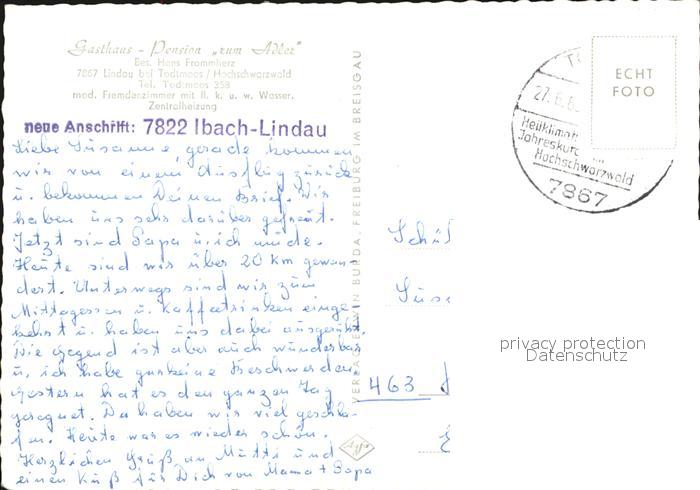 Gasthaus - Pension „zum Adler"
Bes. Hans Frommherz
7867 Lindau bei Todtmoos / Hochschwarzwald
Tel. Todtmoos 358
mod. Fremdenzimmer mit fl. k. u. w. Wasser.
Zentralheizung
neue Anschrift: 7822 Ibach-Lindau
Liebe Susanne, gerade kommen
wir von einem Ausflug zurück
u. bekommen Deinen Brief. Wir
haben uns sehr darüber gefreut.
Jetzt sind Papa u. ich müde.
Heute sind wir über 20 km gewan-
dert. Unterwegs sind wir zum
Mittagessen u. Kaffeetrinken einge-
kehrt u. haben uns dabei ausgeruht.
Die Gegend ist aber auch wunderbar
u. ich habe garkeine Beschwerden.
Gestern hat es den ganzen Tag
geregnet. Da haben wir viel geschla-
fen. Heute war es wieder schön.
Herzlichen Gruß an Mutti und
einen Kuß für Dich von Mama + Papa
VERLAG ERWIN BURDA, FREIBURG IM BREISGAU
Agfa
27.6.6
Heilklima
Jahreskur
Hochschwarzwald
7867
ECHT
FOTO
Schül
Susa
463
privacy protection
Datenschutz